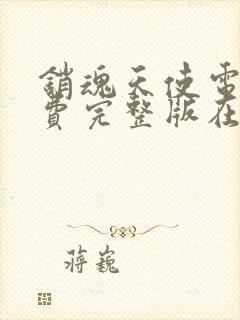 銷魂天使電
費完整版在
蔣巍